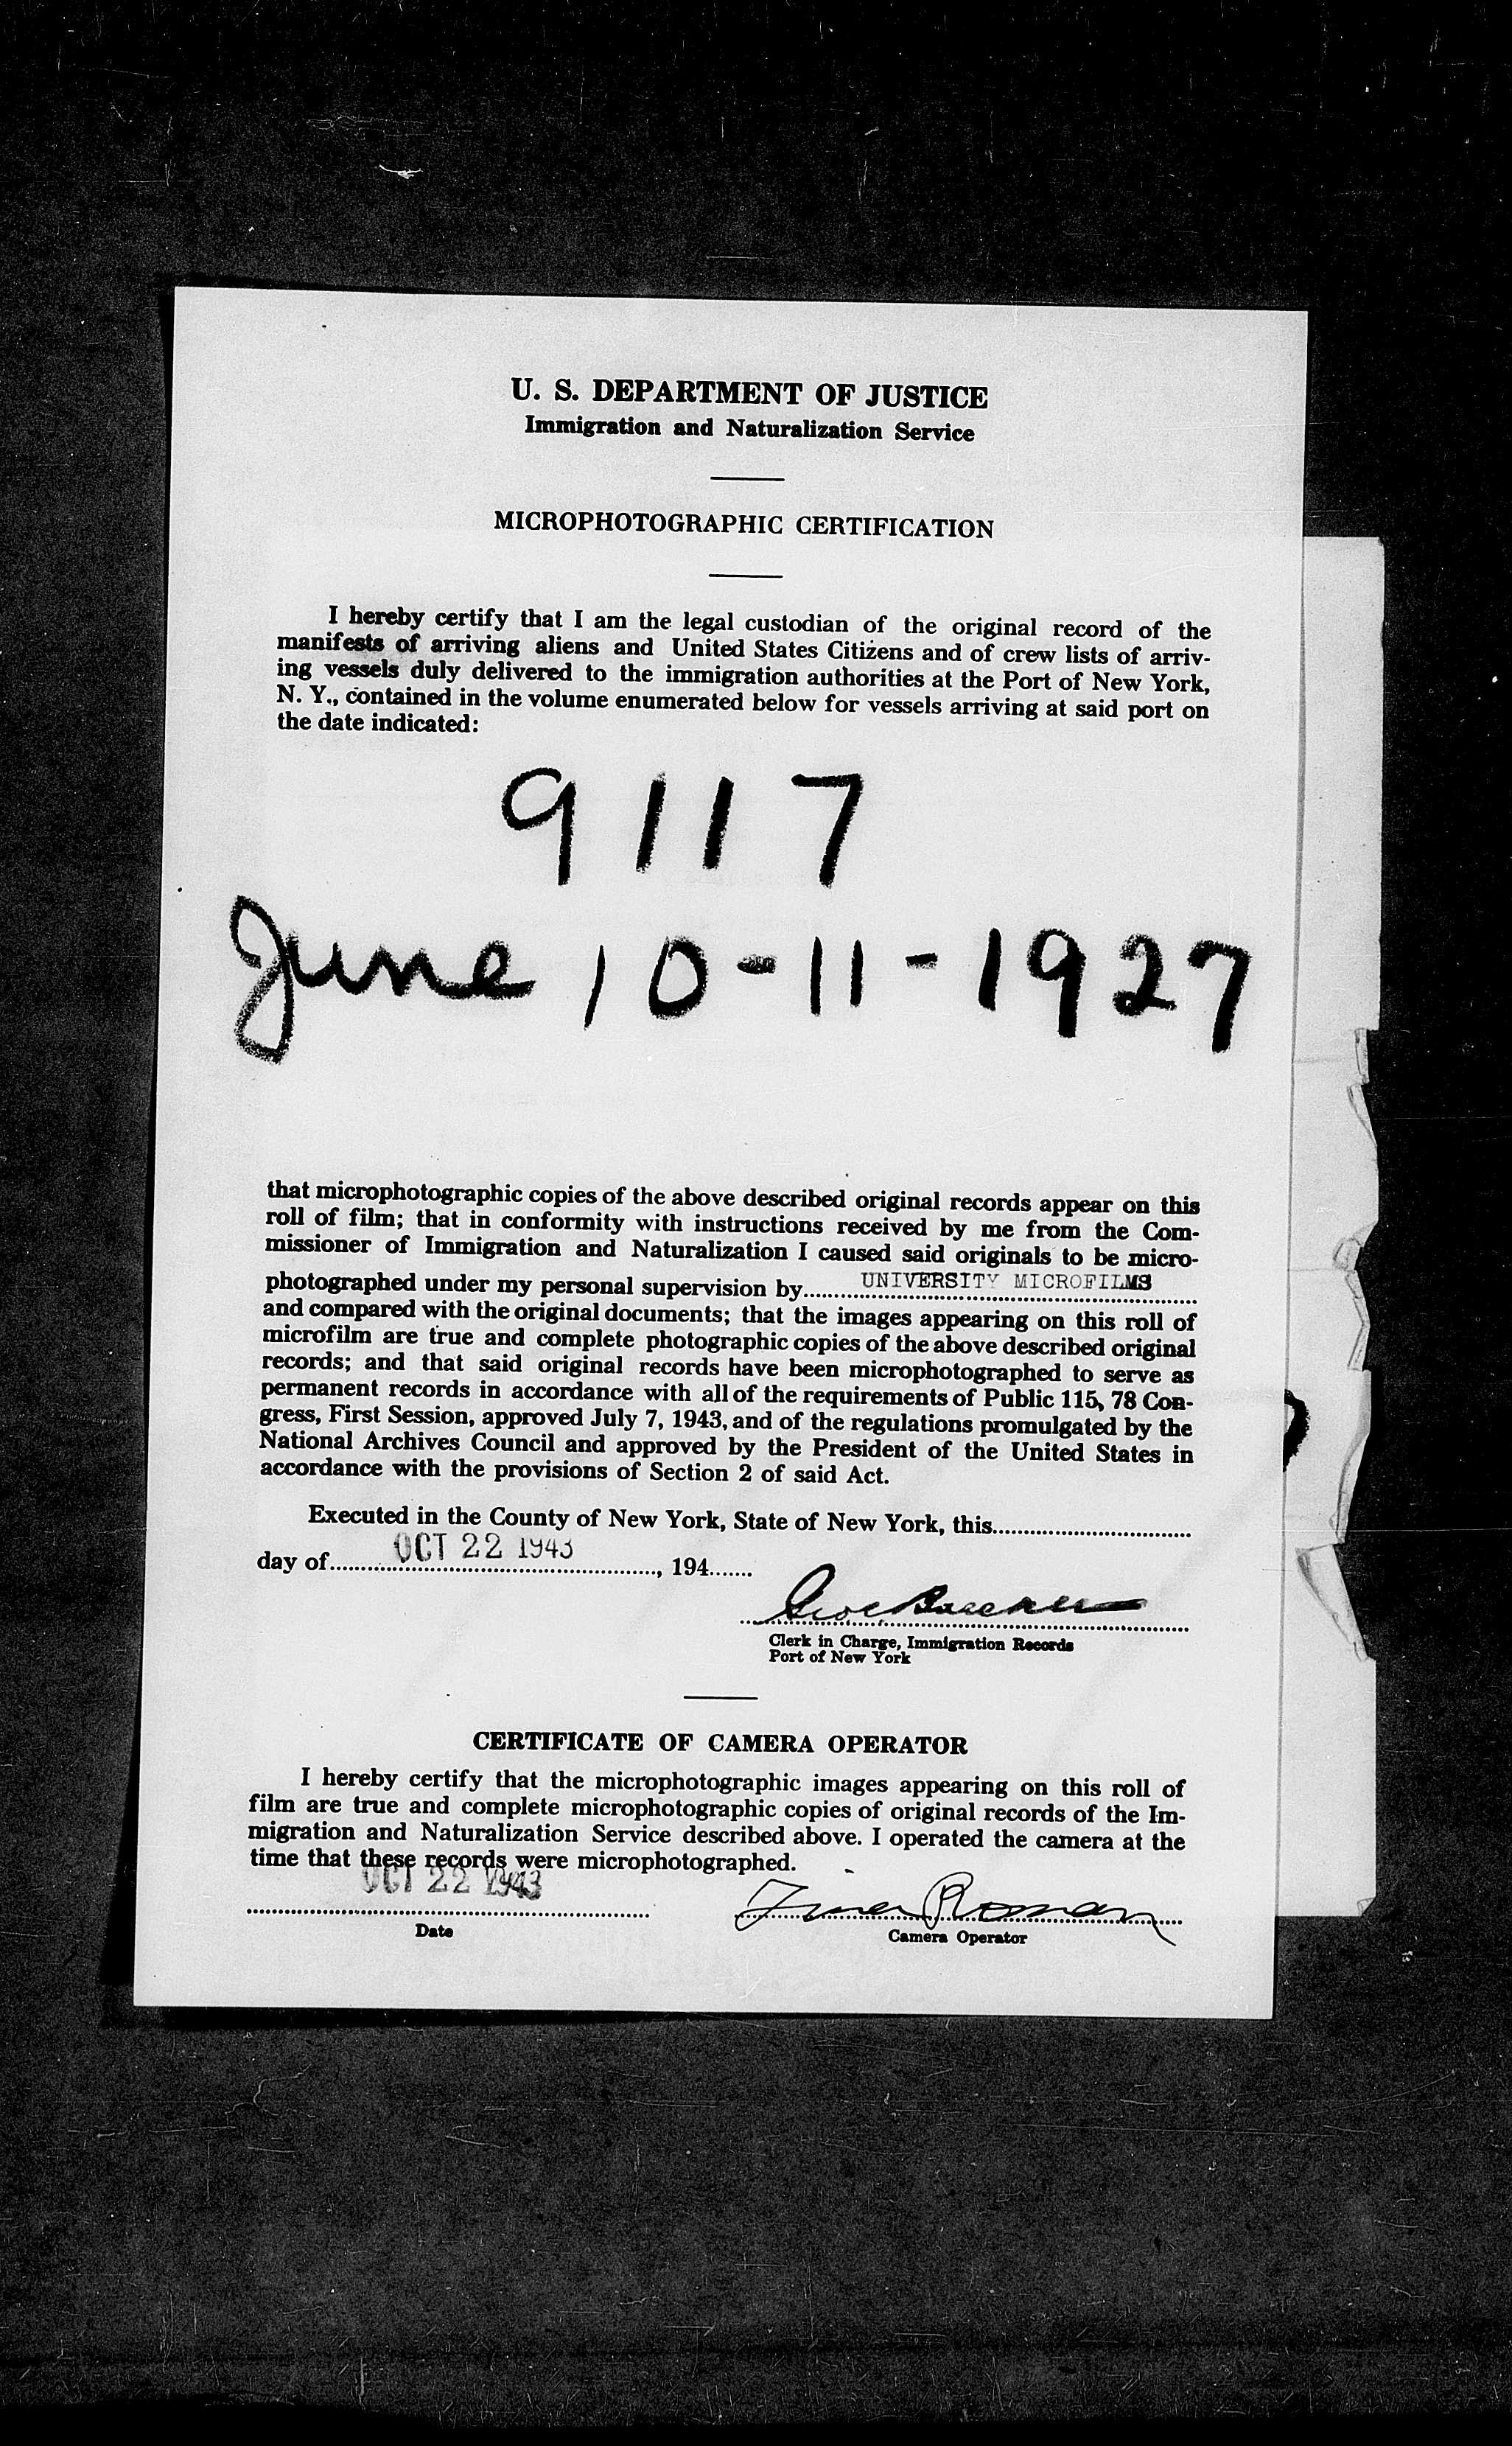 U. S. DEPARTMENT OF JUSTICE
Immigration and Naturalization Service
MICROPHOTOGRAPHIC CERTIFICATION
I hereby certify that I am the legal custodian of the original record of the
manifests of arriving aliens and United States Citizens and of crew lists of arriv-
ing vessels duly delivered to the immigration authorities at the Port of New York,
N. Y., contained in the volume enumerated below for vessels arriving at said port on
the date indicated:
9117
June 10-11-1927
that microphotographic copies of the above described original records appear on this
roll of film; that in conformity with instructions received by me from the Com-
missioner of Immigration and Naturalization I caused said originals to be micro-
photographed under my personal supervision by UNIVERSITY MICROFILMS
and compared with the original documents; that the images appearing on this roll of
microfilm are true and complete photographic copies of the above described original
records; and that said original records have been microphotographed to serve as
permanent records in accordance with all of the requirements of Public 115, 78 Con-
gress, First Session, approved July 7, 1943, and of the regulations promulgated by the
National Archives Council and approved by the President of the United States in
accordance with the provisions of Section 2 of said Act.
Executed in the County of New York, State of New York, this
day of OCT 22 1943, 194
Clerk in Charge, Immigration Records
Port of New York
CERTIFICATE OF CAMERA OPERATOR
I hereby certify that the microphotographic images appearing on this roll of
film are true and complete microphotographic copies of original records of the Im-
migration and Naturalization Service described above. I operated the camera at the
time that these records were microphotographed.
OCT 22 1943 Roman
Date Camera Operator